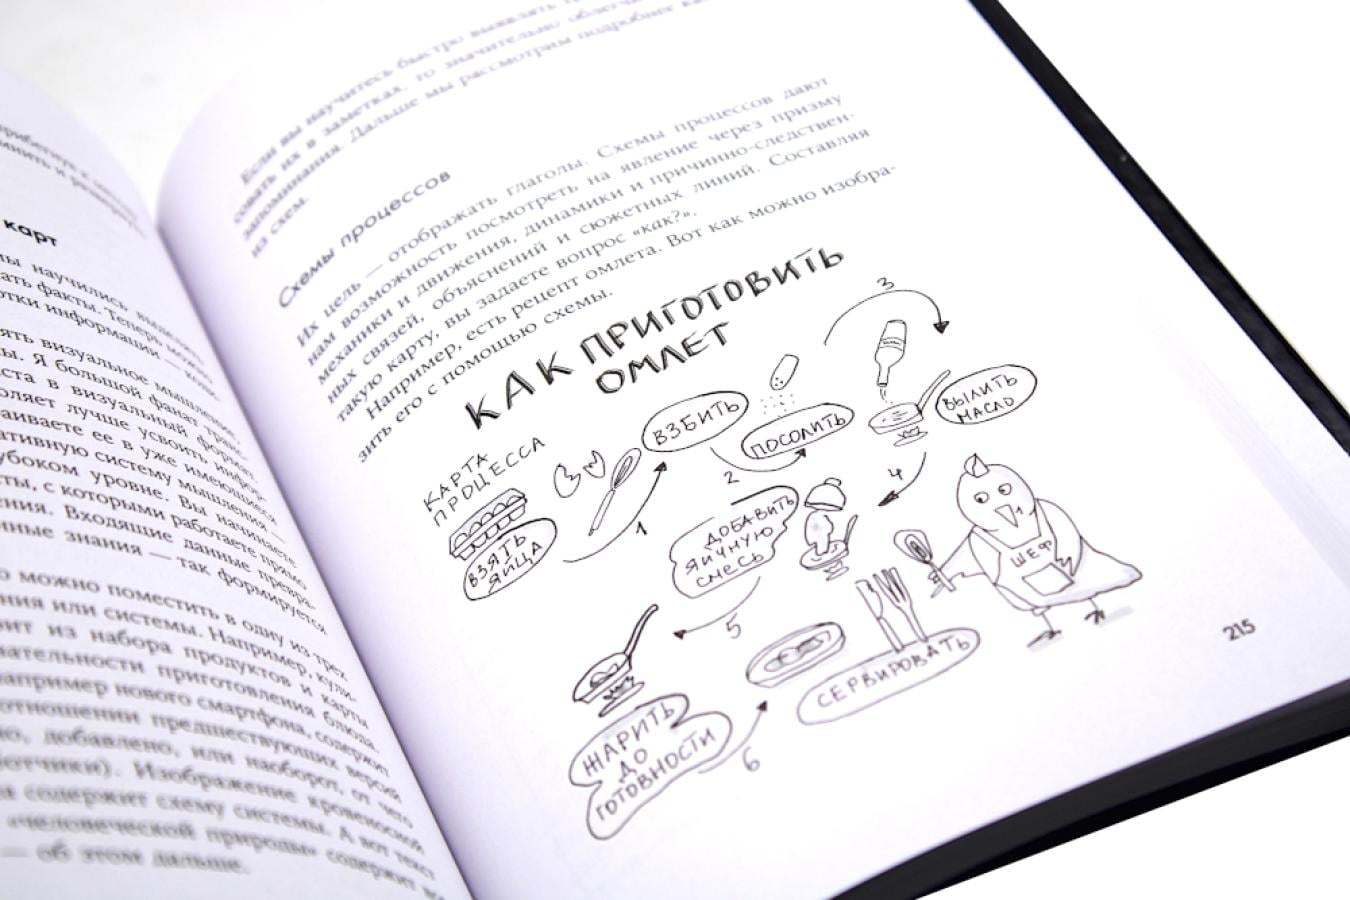 карт
мы научились выделять
ать факты. Теперь можно
отки информации —
ять визуальное мышление.
ы. Я большой фанат транс-
ста в визуальный формат.
оляет лучше усвоить инфор-
раиваете ее в уже имеющиеся
ативную систему мышления —
убоком уровне. Вы начинаете
ты, с которыми работаете прямо
ения. Входящие данные превра-
нные знания — так формируется
о можно поместить в одну из трех
ения или системы. Например, кули-
оит из набора продуктов и карты
вательности приготовления блюда.
например нового смартфона, содержит
отношении предшествующих версий
но, добавлено, или наоборот, от чего
ботчики). Изображение кровеносной
я содержит схему системы. А вот текст
«человеческой природы» содержит
— об этом дальше.
Если вы научитесь быстро выявлять
совать их в заметках, то значительно
запоминания. Дальше мы рассмотрим подробнее
из схем.
Схемы процессов
Их цель — отображать глаголы. Схемы процессов дают
нам возможность посмотреть на явление через призму
механики и движения, динамики и причинно-следствен-
ных связей, объяснений и сюжетных линий. Составляя
такую карту, вы задаете вопрос «как?».
Например, есть рецепт омлета. Вот как можно изобра-
зить его с помощью схемы.
КАК ПРИГОТОВИТЬ
ОМЛЕТ
КАРТА
ПРОЦЕССА
ВЗЯТЬ
ЯЙЦА
1
ВЗБИТЬ
2
ПОСОЛИТЬ
3
ВЫЛИТЬ
МАСЛО
4
ДОБАВИТЬ
ЯИЧНУЮ
СМЕСЬ
5
ЖАРИТЬ
ДО
ГОТОВНОСТИ
6
СЕРВИРОВАТЬ
ШЕФ
215